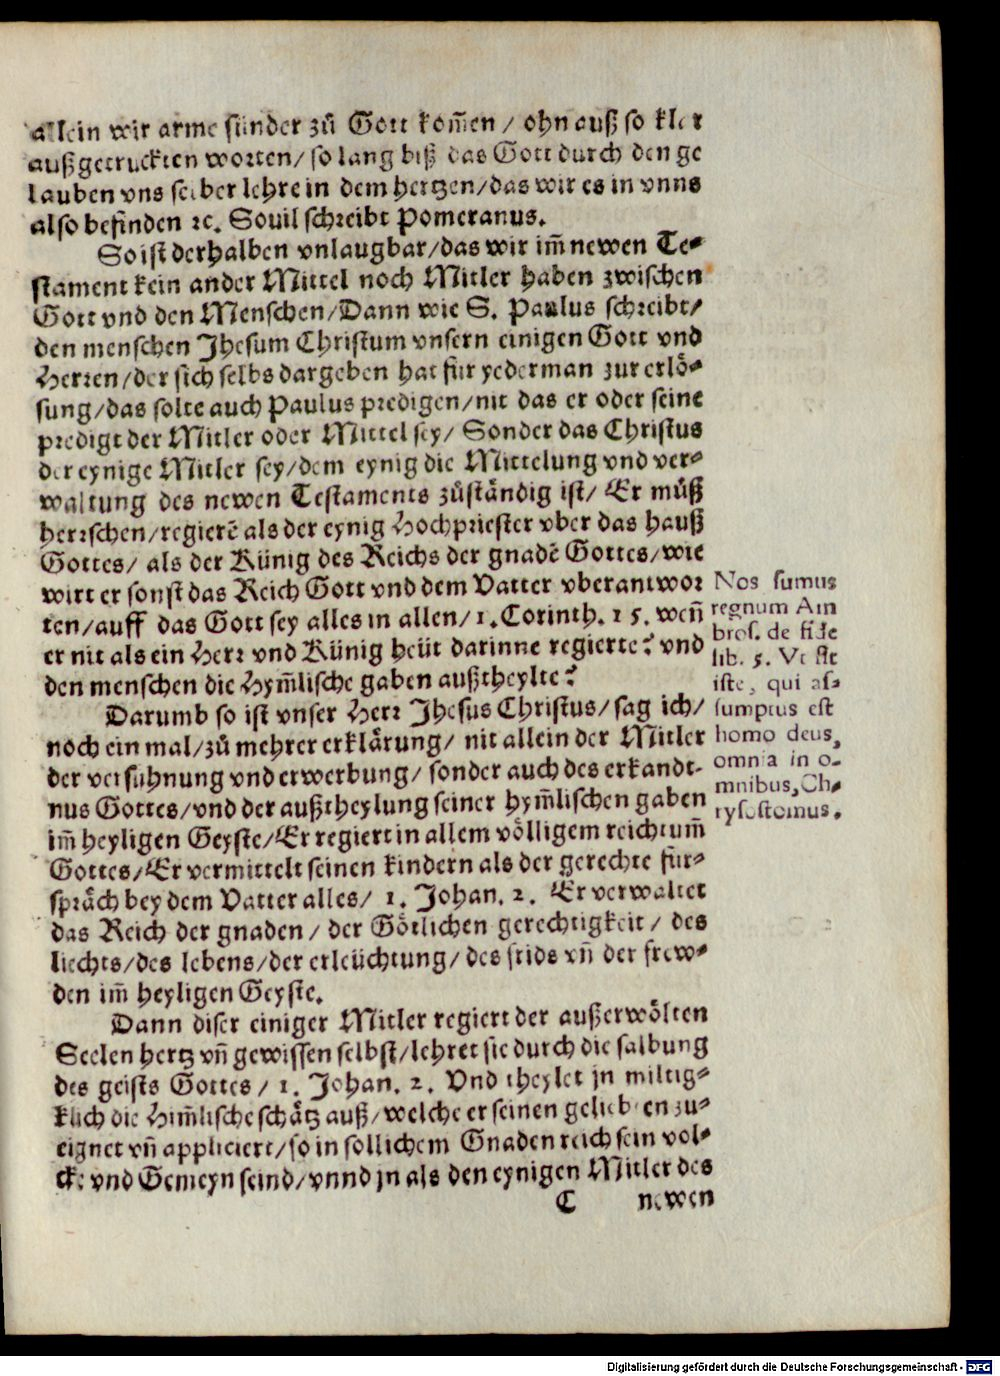 allein wir arme sünder zů Gott kom̃en / ohn auß so kler
außgetruckten worten/ so lang biß das Gott durch den ge
lauben vns selber lehre in dem hertzen/das wir es in vnns
also befinden ꝛc. Souil schreibt Pomeranus.
So ist derhalben vnlaugbar/das wir im̃ newen Te⸗
stament kein ander Mittel noch Mitler haben zwischen
Gott vnd den Menschen/Dann wie S. Paulus schreibt/
den menschen Jhesum Christum vnsern einigen Gott vnd
Herren/der sich selbs dargeben hat für yederman zur erlö⸗
sung/das solte auch Paulus predigen/nit das er oder seine
predigt der Mitler oder Mittel sey/ Sonder das Christus
der eynige Mitler sey/dem eynig die Mittelung vnd ver⸗
waltung des newen Testaments zůständig ist/ Er můß
herrschen/regierē als der eynig Hochpriester vber das hauß
Gottes/ als der Künig des Reichs der gnadē Gottes/wie
wirt er sonst das Reich Gott vnd dem Vatter vberantwor
ten/auff das Gott sey alles in allen/1. Corinth. 15. weñ
er nit als ein Herr vnd Künig heüt darinne regierte? vnd
den menschen die Hym̃lische gaben außtheylte?
Nos sumus
regnum Am
bros. de fide
lib. 5. Vt sit
iste, qui as⸗
sumptus est
homo deus,
omnia in o⸗
mnibus, Ch⸗
rysostomus.
Darumb so ist vnser Herr Jhesus Christus/sag ich/
noch ein mal/zů mehrer erklärung/ nit allein der Mitler
der versühnung vnd erwerbung/ sonder auch des erkandt⸗
nus Gottes/vnd der außtheylung seiner hym̃lischen gaben
im̃ heyligen Geyste/Er regiert in allem völligem reichtum̃
Gottes/Er vermittelt seinen kindern als der gerechte für⸗
spräch bey dem Vatter alles/ 1. Johan. 2. Er verwaltet
das Reich der gnaden / der Götlichen gerechtigkeit / des
liechts/des lebens/der erleüchtung/des frids vñ der frew⸗
den im̃ heyligen Geyste.
Dann diser einiger Mitler regiert der außerwölten
Seelen hertz vñ gewissen selbst/lehret sie durch die salbung
des geists Gottes / 1. Johan. 2. Vnd theylet jn miltig⸗
klich die Him̃lische schätz auß/welche er seinen gelieben zu⸗
eignet vñ appliciert/so in sollichem Gnadenreich sein vol⸗
ck vnd Gemeyn seind/vnnd jn als den eynigen Mitler des
C newen
Digitalisierung gefördert durch die Deutsche Forschungsgemeinschaft - DFG